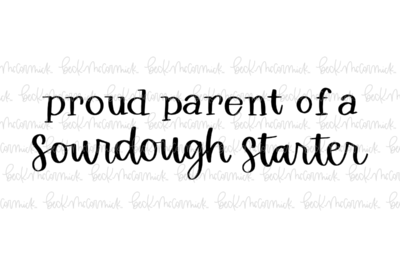 proud parent of a
sourdough starter